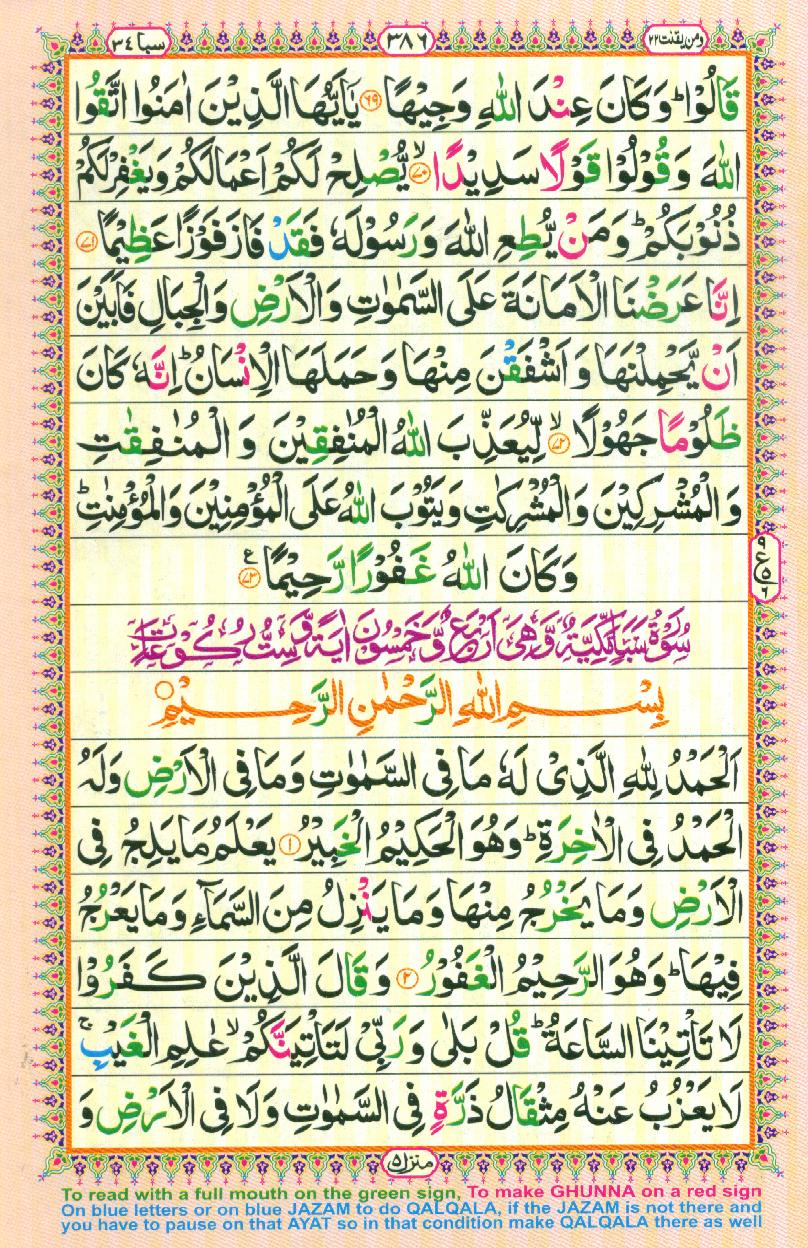 سبا ٣٤
٣٨٦
ومن يقنت ٢٢
قَالُوْا ؕ وَكَانَ عِنْدَ اللّٰهِ وَجِيْهًا ۟﴿۶۹﴾ يٰۤاَيُّهَا الَّذِيْنَ اٰمَنُوا اتَّقُوا
اللّٰهَ وَ قُوْلُوْا قَوْلًا سَدِيْدًا ۙ﴿۷۰﴾ يُّصْلِحْ لَكُمْ اَعْمَالَكُمْ وَيَغْفِرْ لَكُمْ
ذُنُوْبَكُمْ ؕ وَ مَنْ يُّطِعِ اللّٰهَ وَ رَسُوْلَهٗ فَقَدْ فَازَ فَوْزًا عَظِيْمًا ﴿۷۱﴾
اِنَّا عَرَضْنَا الْاَمَانَةَ عَلَى السَّمٰوٰتِ وَ الْاَرْضِ وَ الْجِبَالِ فَاَبَيْنَ
اَنْ يَّحْمِلْنَهَا وَ اَشْفَقْنَ مِنْهَا وَ حَمَلَهَا الْاِنْسَانُ ؕ اِنَّهٗ كَانَ
ظَلُوْمًا جَهُوْلًا ۙ﴿۷۲﴾ لِّيُعَذِّبَ اللّٰهُ الْمُنٰفِقِيْنَ وَ الْمُنٰفِقٰتِ
وَ الْمُشْرِكِيْنَ وَ الْمُشْرِكٰتِ وَ يَتُوْبَ اللّٰهُ عَلَى الْمُؤْمِنِيْنَ وَ الْمُؤْمِنٰتِ ؕ
وَ كَانَ اللّٰهُ غَفُوْرًا رَّحِيْمًا ﴿۷۳﴾ ع
٩
ع
٥
٦
سُوْرَةُ سَبَاٍ مَّكِّيَّةٌ وَّهِىَ اَرْبَعٌ وَّخَمْسُوْنَ اٰيَةً وَّسِتُّ رُكُوْعَاتٍ
بِسْمِ اللّٰهِ الرَّحْمٰنِ الرَّحِيْمِ
اَلْحَمْدُ لِلّٰهِ الَّذِىْ لَهٗ مَا فِى السَّمٰوٰتِ وَمَا فِى الْاَرْضِ وَلَهُ
الْحَمْدُ فِى الْاٰخِرَةِ ؕ وَهُوَ الْحَكِيْمُ الْخَبِيْرُ ﴿۱﴾ يَعْلَمُ مَا يَلِجُ فِى
الْاَرْضِ وَمَا يَخْرُجُ مِنْهَا وَمَا يَنْزِلُ مِنَ السَّمَآءِ وَمَا يَعْرُجُ
فِيْهَا ؕ وَهُوَ الرَّحِيْمُ الْغَفُوْرُ ﴿۲﴾ وَ قَالَ الَّذِيْنَ كَفَرُوْا
لَا تَاْتِيْنَا السَّاعَةُ ؕ قُلْ بَلٰى وَ رَبِّىْ لَتَاْتِيَنَّكُمْ ۙ عٰلِمِ الْغَيْبِ ۚ
لَا يَعْزُبُ عَنْهُ مِثْقَالُ ذَرَّةٍ فِى السَّمٰوٰتِ وَلَا فِى الْاَرْضِ وَ
منزل ٥
To read with a full mouth on the green sign, To make GHUNNA on a red sign
On blue letters or on blue JAZAM to do QALQALA, if the JAZAM is not there and
you have to pause on that AYAT so in that condition make QALQALA there as well